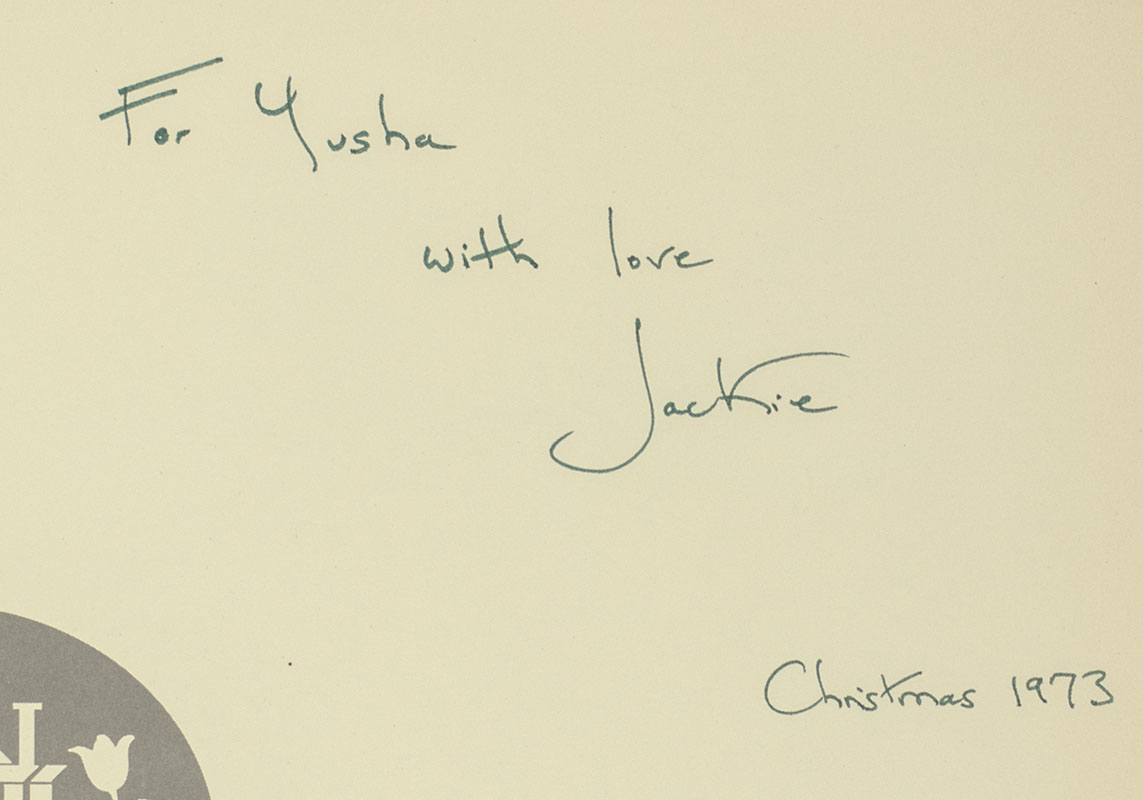 For Yusha
with love
Jackie
Christmas 1973